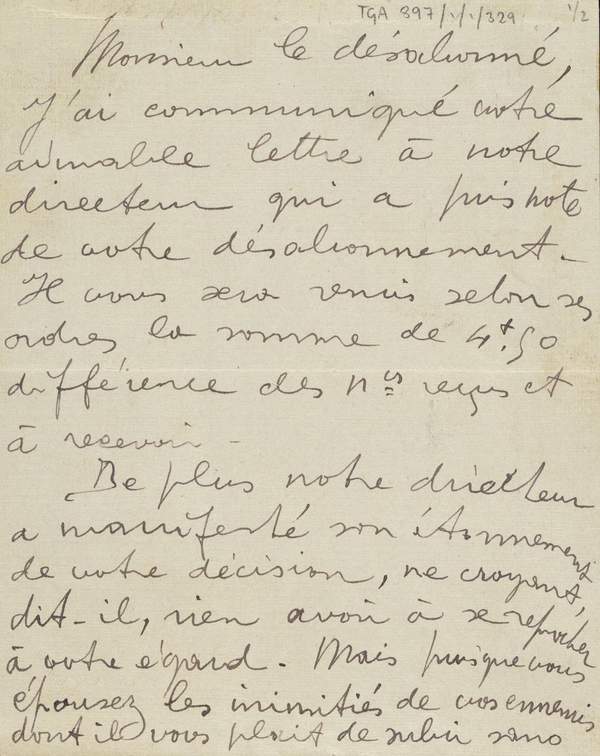 TGA 897/1/1/329 1/2
Monsieur le désabonné,
J'ai communiqué votre
aimable lettre à notre
directeur qui a pris note
de votre désabonnement.
Il vous sera remis selon ses
ordres la somme de 4f.50
différence des nos reçus et
à recevoir -
De plus notre directeur
a manifesté son étonnement
de votre décision, ne croyant,
dit-il, rien avoir à se reprocher
à votre égard. Mais puisque vous
épousez les inimitiés de vos ennemis
dont il vous plait de subir sans